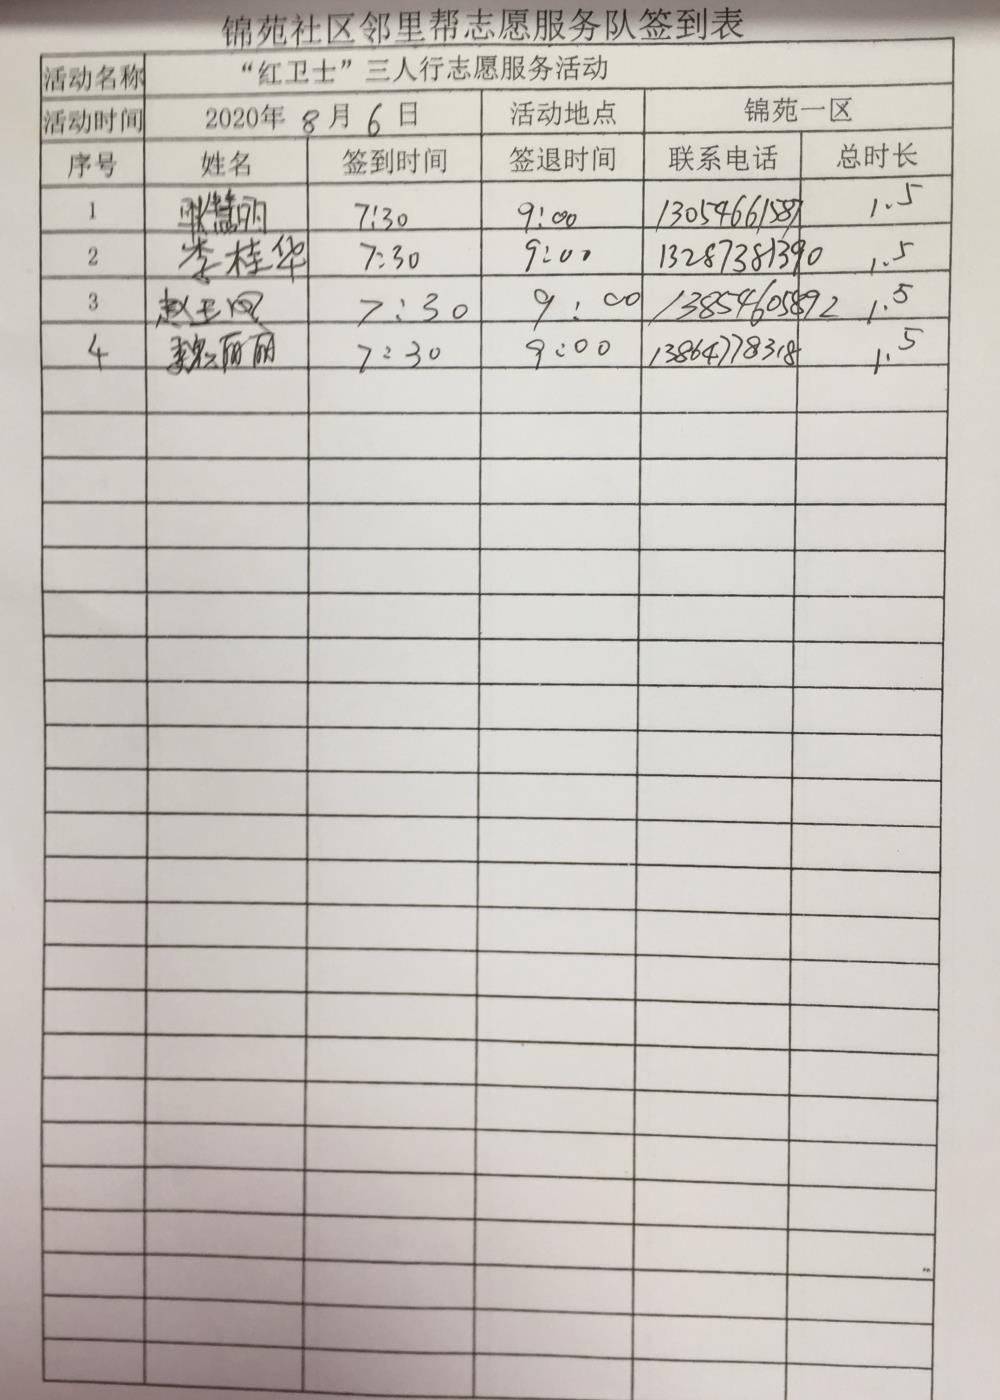 锦苑社区邻里帮志愿服务队签到表
活动名称 “红卫士”三人行志愿服务活动
活动时间 2020年 8 月 6 日 活动地点 锦苑一区
序号 姓名 签到时间 签退时间 联系电话 总时长
1 耿慧丽 7:30 9:00 13054661587 1.5
2 李桂华 7:30 9:00 13287381390 1.5
3 赵玉凤 7:30 9:00 13854605892 1.5
4 魏丽丽 7:30 9:00 13864778318 1.5